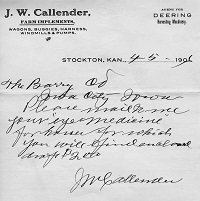 J. W. Callender,
FARM IMPLEMENTS,
WAGONS, BUGGIES, HARNESS,
WINDMILLS & PUMPS.
AGENTS FOR
DEERING
Harvesting Machinery
STOCKTON, KAN., 4-5- 1906
The Barry Co
Iowa City Iowa
Please mail to me
your "eye medicine"
for horse for which
you will find enclosed
draft $2.00
J W Callender